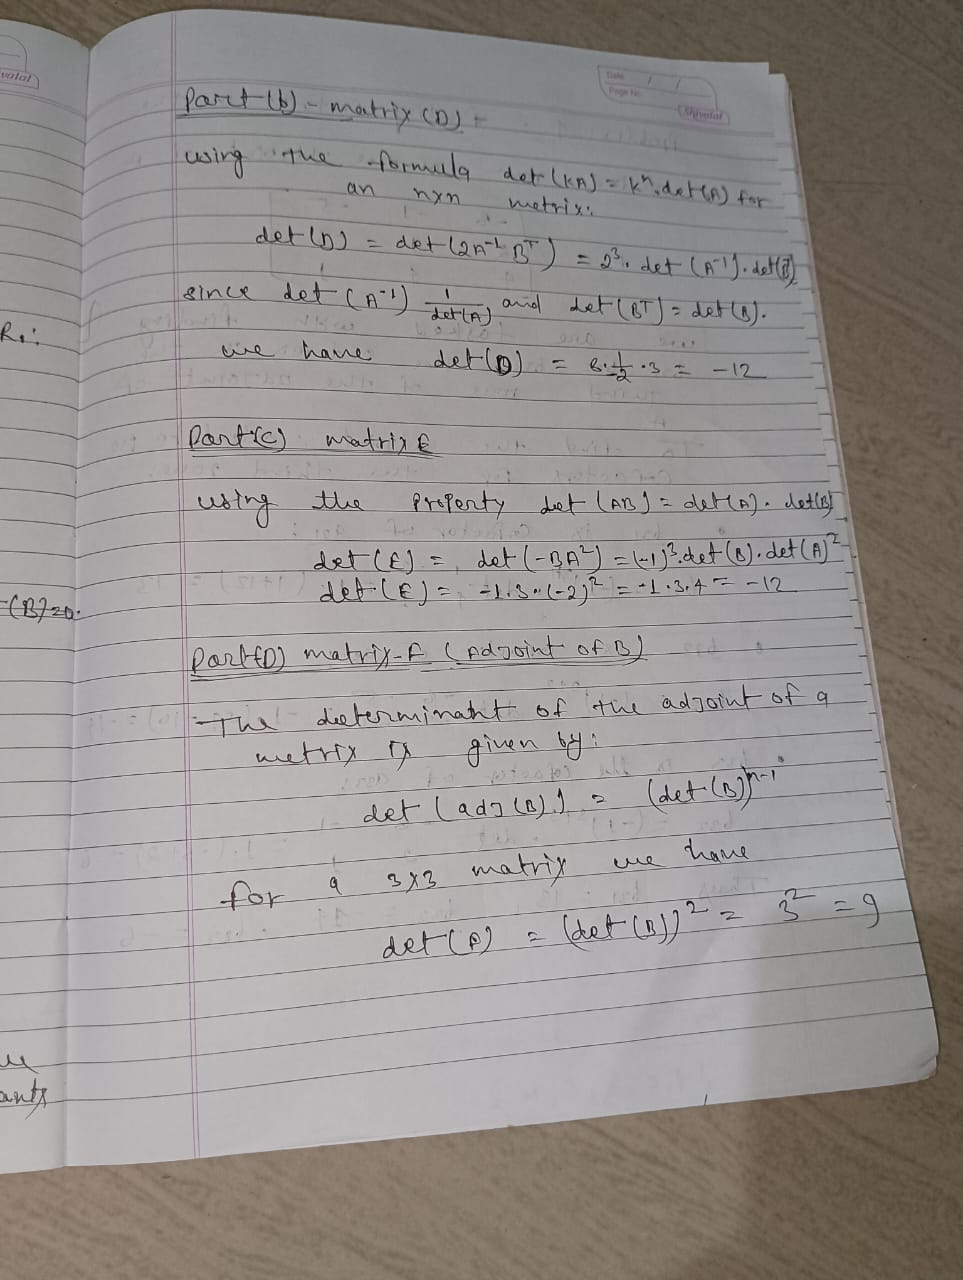 valal
Date / /
Page No.
Shivalal
Part (b) - matrix (D) -
using the formula det (KA) = kⁿ. det (A) for
an nxn metrix:
det (D) = det (2A⁻¹ Bᵀ) = 2³. det (A⁻¹). det(B)
since det (A⁻¹) 1/det(A) and det (Bᵀ) = det (B).
we have det (D) = 8. 1/-2 .3 = -12
Part (c) matrix E
using the property det (AB) = det (A). det(B)
det (E) = det (-BA²) = (-1)³. det (B). det (A)²
det (E) = -1.3.(-2)² = -1.3.4 = -12
Part (D) matrix-F (Adjoint of B)
The determinant of the adjoint of a
metrix is given by:
det (adj (B)) = (det (B))ⁿ⁻¹
for a 3x3 matrix we have
det (F) = (det (B))² = 3² = 9
R₁:
(B)=0.
ants